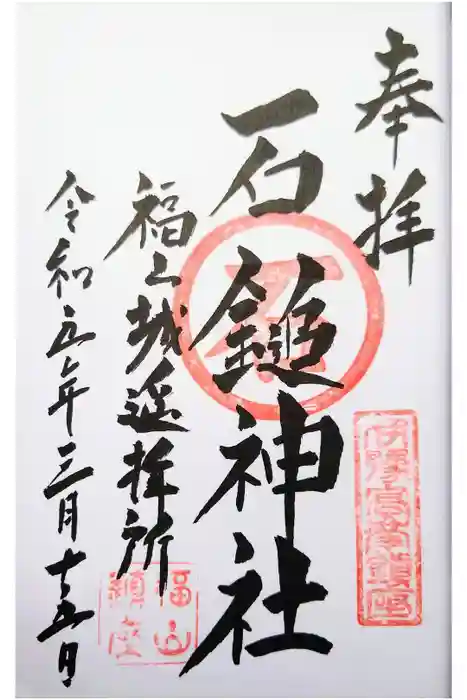 奉拝
石鎚神社
福山城遥拝所
令和五年三月十五日
福山
鎮座